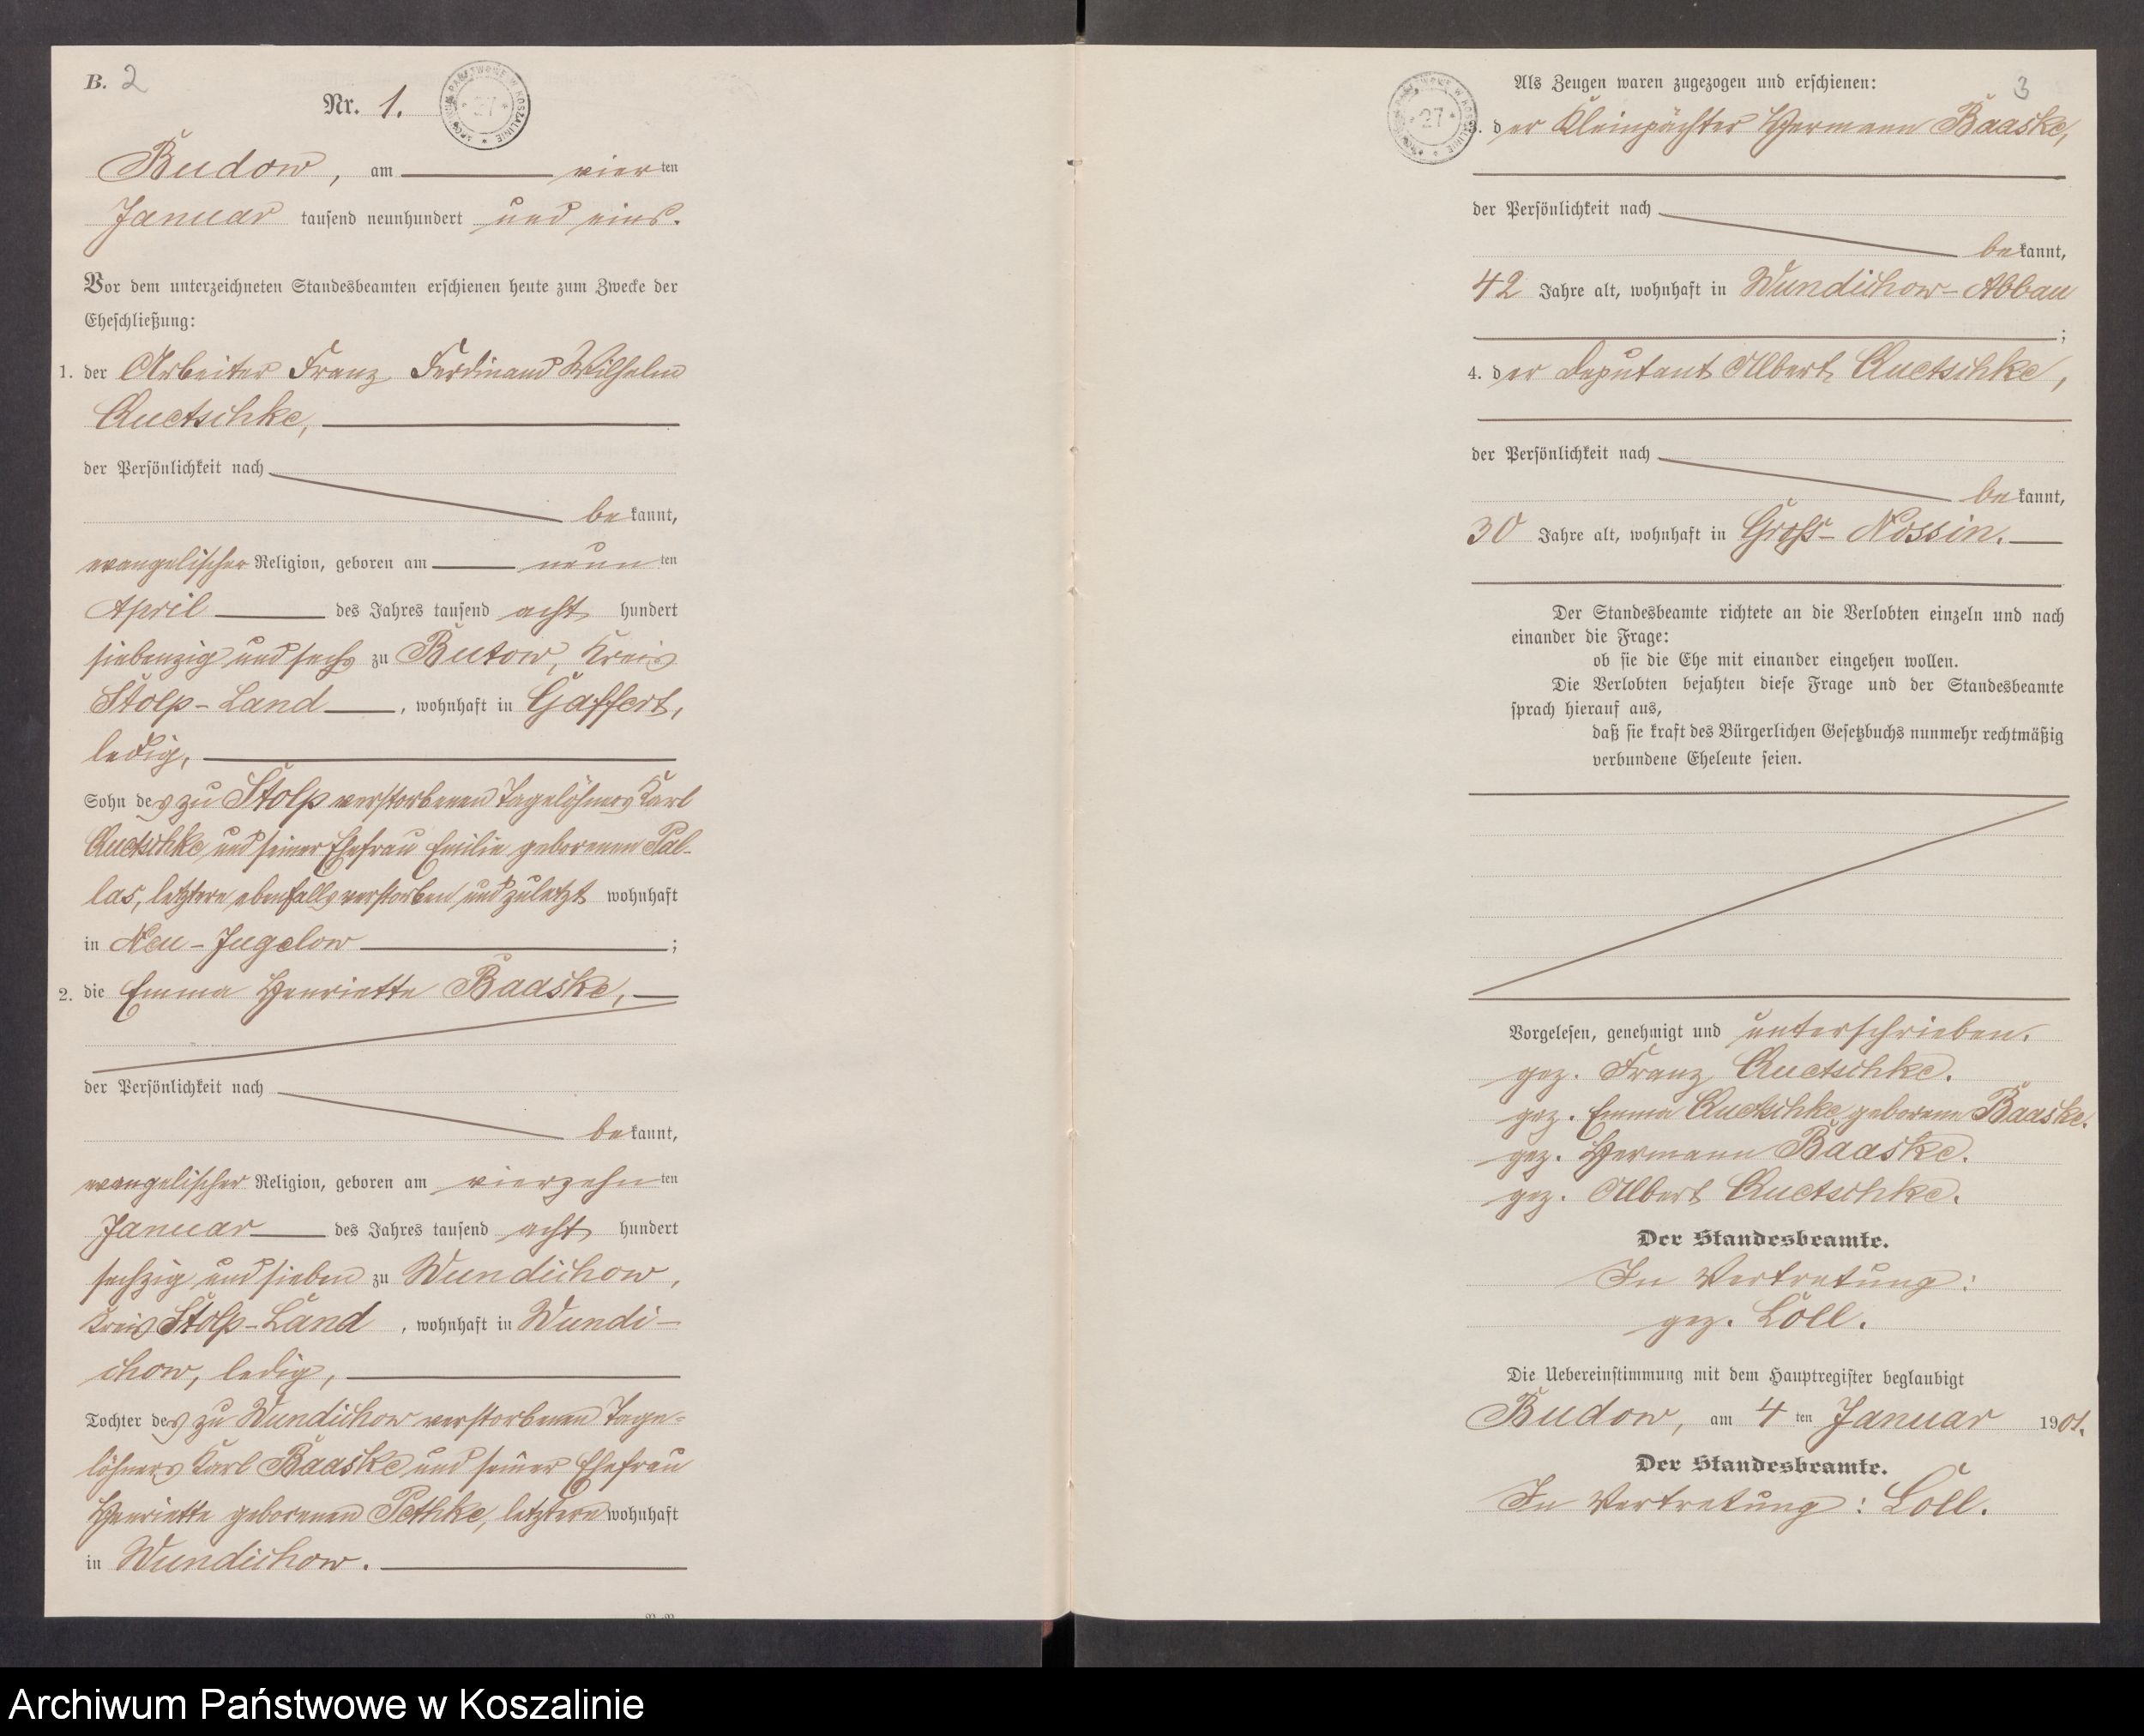 B. 2
Nr. 1.
Budow, am vierten
Januar tausend neunhundert und eins.
Vor dem unterzeichneten Standesbeamten erschienen heute zum Zwecke der
Eheschließung:
1. der Arbeiter Franz Ferdinand Wilhelm
Quetschke,
der Persönlichkeit nach
bekannt,
evangelischer Religion, geboren am neunten
April des Jahres tausend acht hundert
siebenzig und sechs zu Butow, Kreis
Stolp-Land, wohnhaft in Gaffert,
ledig,
Sohn des zu Stolp verstorbenen Tagelöhners Karl
Quetschke und seiner Ehefrau Emilie geborenen Pal-
las, letztere ebenfalls verstorben und zuletzt wohnhaft
in Neu-Jugelow ;
2. die Emma Henriette Baaske,
der Persönlichkeit nach
bekannt,
evangelischer Religion, geboren am vierzehnten
Januar des Jahres tausend acht hundert
sechzig und sieben zu Wundichow,
Kreis Stolp-Land, wohnhaft in Wundi-
chow, ledig,
Tochter des zu Wundichow verstorbenen Tage-
löhners Karl Baaske und seiner Ehefrau
Henriette geborenen Pethke, letztere wohnhaft
in Wundichow.
3
Als Zeugen waren zugezogen und erschienen:
3. der Kleinpächter Hermann Baaske,
der Persönlichkeit nach
bekannt,
42 Jahre alt, wohnhaft in Wundichow-Abbau
;
4. der Deputant Albert Quetschke,
der Persönlichkeit nach
bekannt,
30 Jahre alt, wohnhaft in Groß-Nossin.
Der Standesbeamte richtete an die Verlobten einzeln und nach
einander die Frage:
ob sie die Ehe mit einander eingehen wollen.
Die Verlobten bejahten diese Frage und der Standesbeamte
sprach hierauf aus,
daß sie kraft des Bürgerlichen Gesetzbuchs nunmehr rechtmäßig
verbundene Eheleute seien.
Vorgelesen, genehmigt und unterschrieben.
gez. Franz Quetschke.
gez. Emma Quetschke geborene Baaske.
gez. Hermann Baaske.
gez. Albert Quetschke.
Der Standesbeamte.
In Vertretung:
gez. Loll.
Die Uebereinstimmung mit dem Hauptregister beglaubigt
Budow, am 4ten Januar 1901.
Der Standesbeamte.
In Vertretung: Loll.
Archiwum Państwowe w Koszalinie